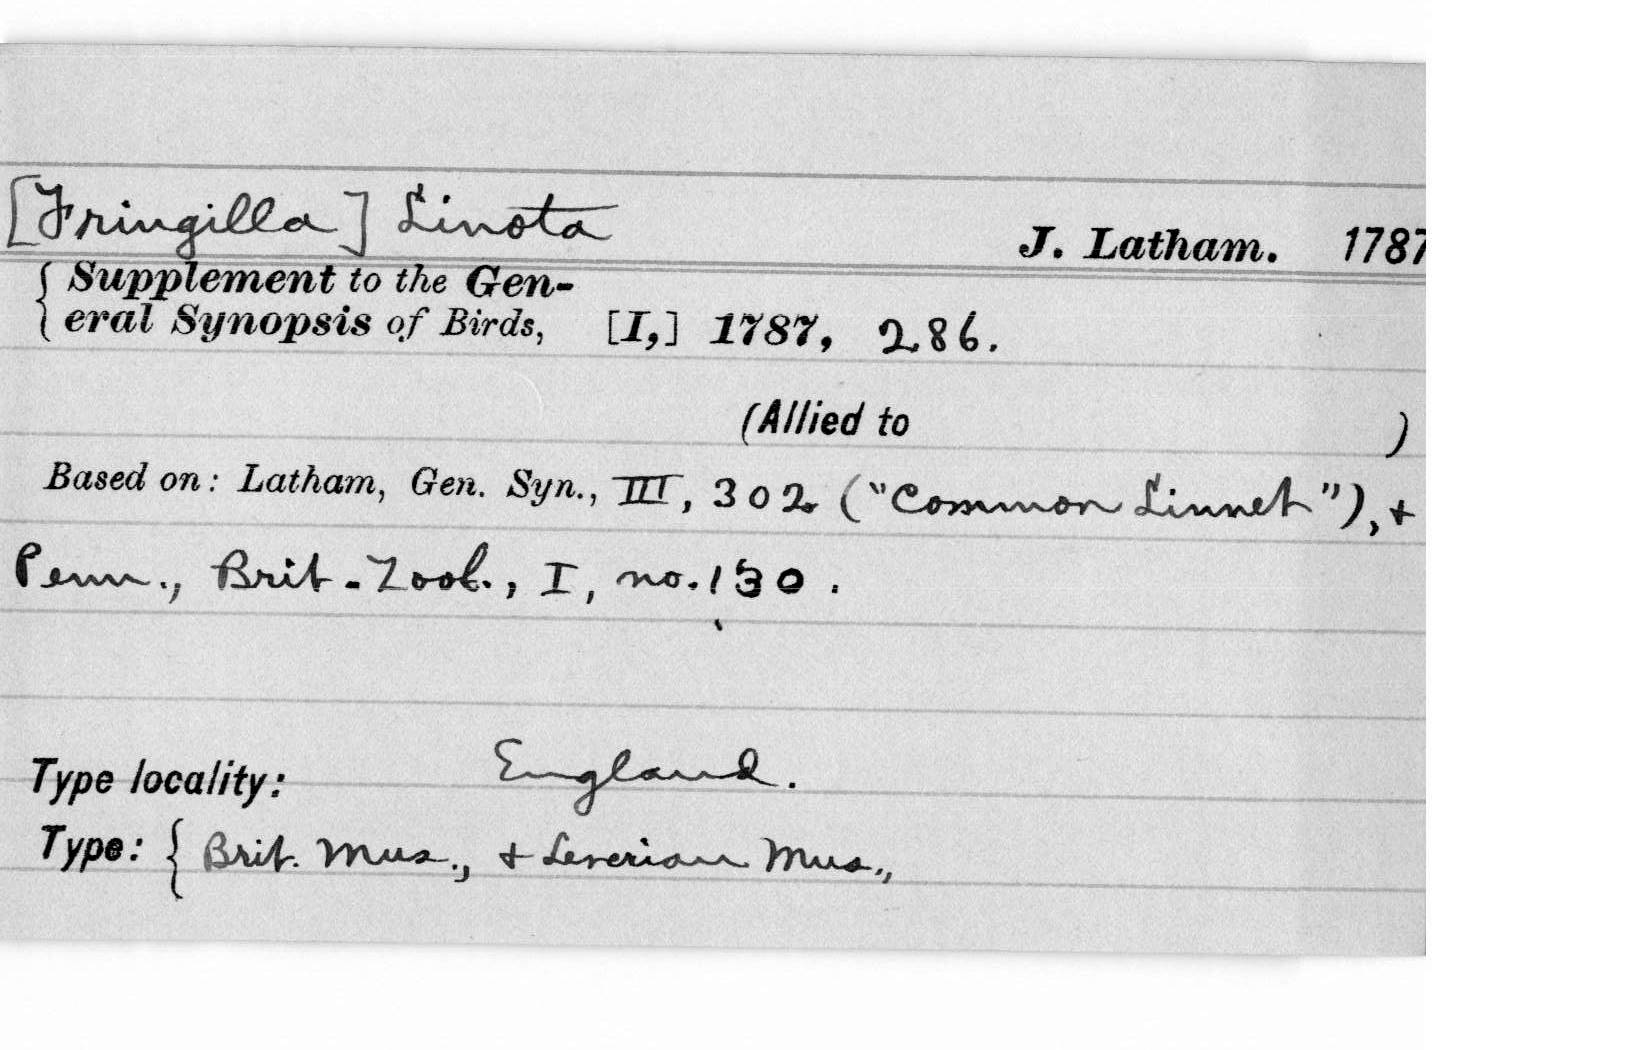 [Fringilla] Linota J. Latham. 1787
{ Supplement to the Gen-
eral Synopsis of Birds, [I,] 1787, 286.
(Allied to )
Based on: Latham, Gen. Syn., III, 302 ("Common Linnet"), +
Penn., Brit. Zool., I, no. 130.
Type locality: England.
Type: { Brit. Mus., + Leverian Mus.,